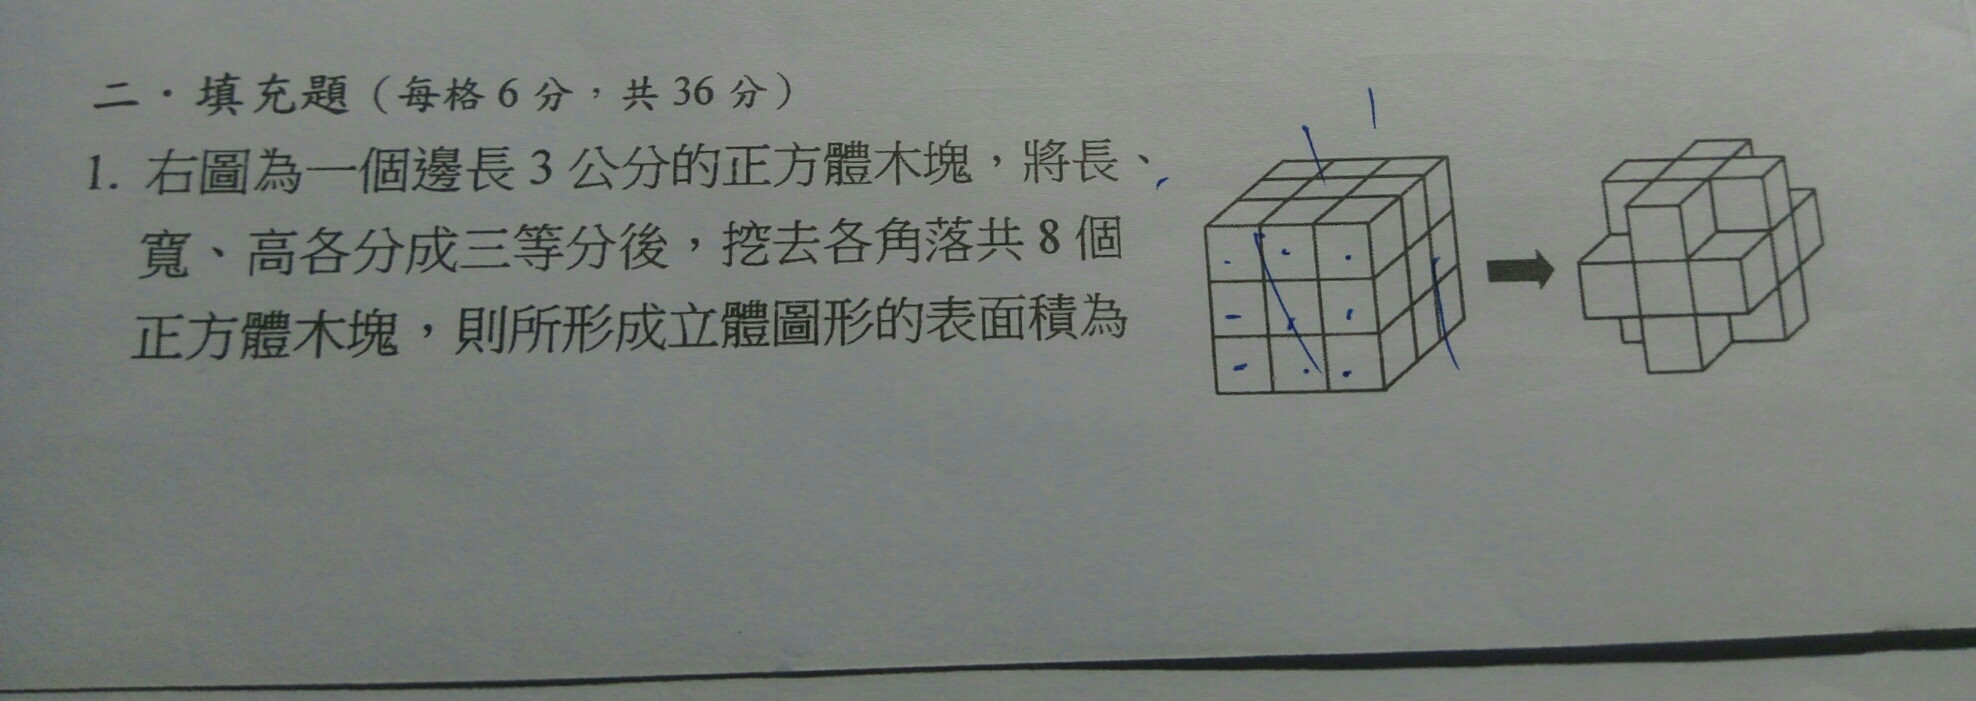 二．填充題（每格6分，共36分）
1. 右圖為一個邊長3公分的正方體木塊，將長、
寬、高各分成三等分後，挖去各角落共8個
正方體木塊，則所形成立體圖形的表面積為